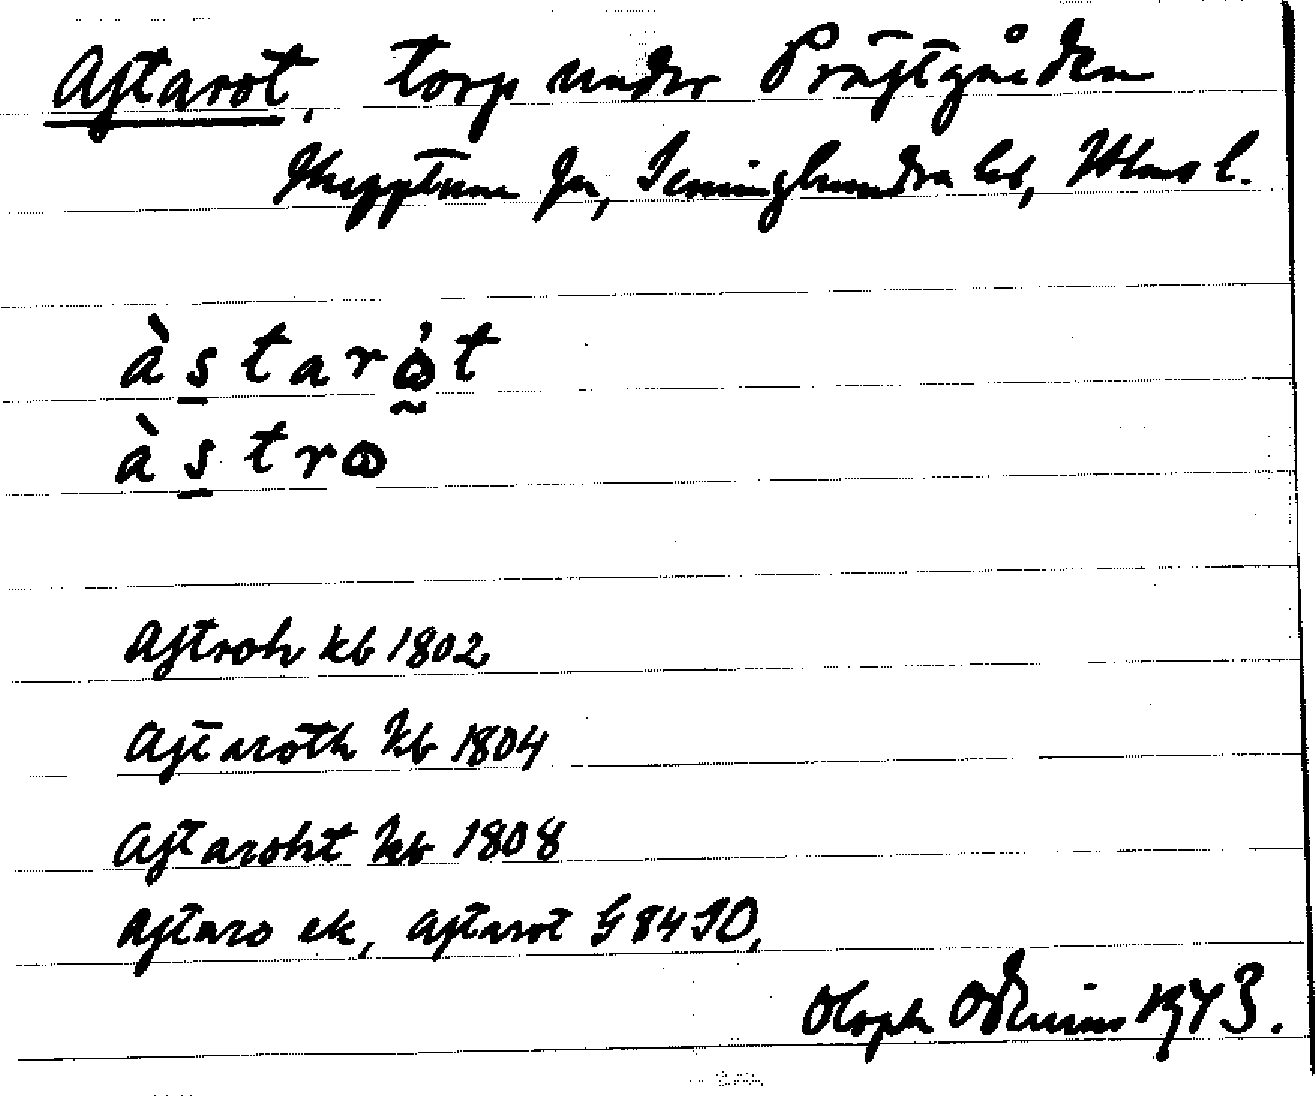 Astarot, torp under Prästgården
Skepptuna sn, Seminghundra hd, Sthms l.
àstarω̇t
àstrω
Astroh kb 1802
Astaroth kb 1804
Astaroht kb 1808
Astaro ek, Astarot G 84 SO,
Oloph Odenius 1943.